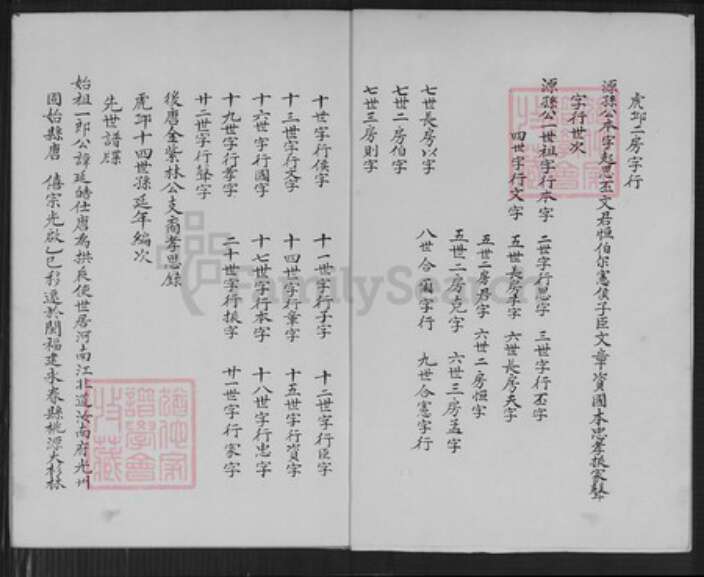 虎邱二房字行
源孫公奉字起思丕文君恒伯尔憲侯子臣文章資國本忠孝振家聲
字行世次
源孫公一世祖字行本字 二世字行思字 三世字行丕字
四世字行文字 五世長房平字 六世長房天字
五世二房君字 六世二房恒字
五世三房克字 六世三房孟字
七世長房以字 八世合爾字行 九世合憲字行
七世二房伯字
七世三房則字
十世字行侯字 十一世字行子字 十二世字行臣字
十三世字行文字 十四世字行章字 十五世字行資字
十六世字行國字 十七世字行本字 十八世字行忠字
十九世字行孝字 二十世字行振字 廿一世字行家字
廿二世字行聲字
後唐金紫林公支裔孝思錄
虎邱十四世孫延年編次
先世譜牒
始祖一郎公諱廷皜仕唐為拱辰使世居河南江北道汝南府光州
固始縣唐 僖宗光啟乙巳移遷於閩福建永春縣桃源大杉林
FamilySearch